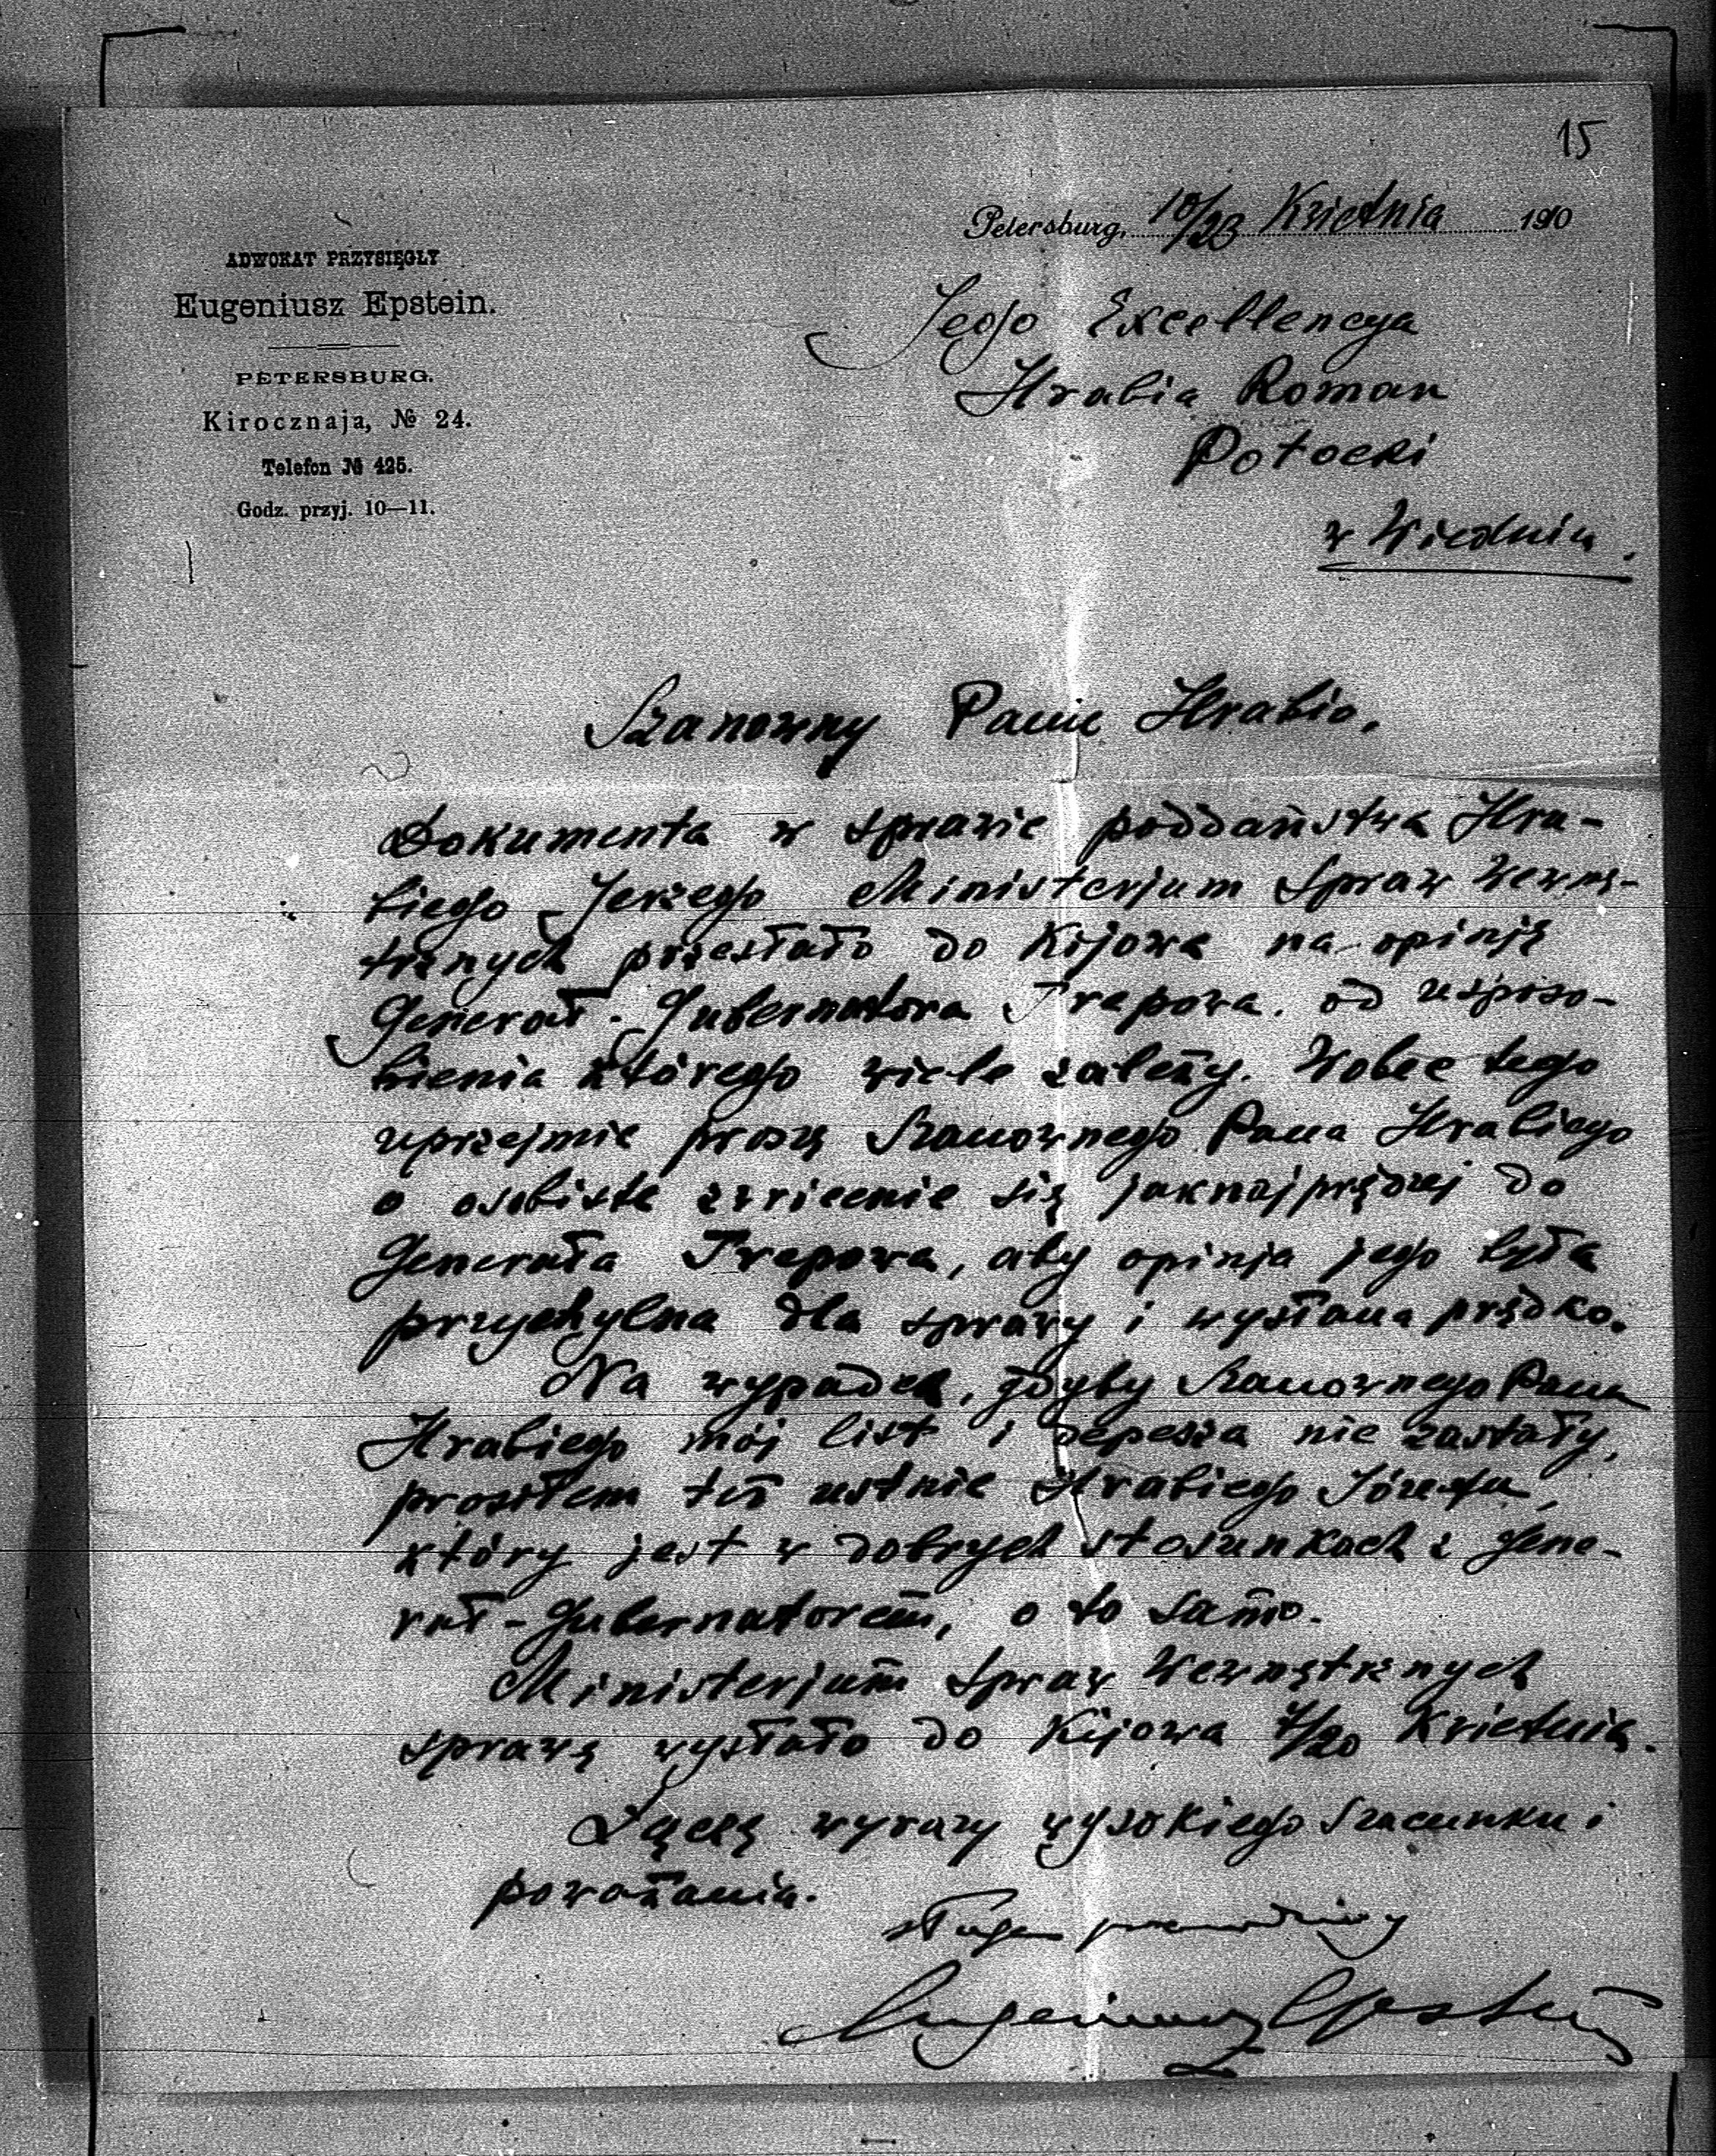 15
Petersburg, 10/23 Kwietnia 1910
ADWOKAT PRZYSIĘGŁY
Eugeniusz Epstein.
PETERSBURG.
Kirocznaja, № 24.
Telefon № 425.
Godz. przyj. 10—11.
Jego Excellencya
Hrabia Roman
Potocki
w Wiedniu.
Szanowny Panie Hrabio.
Dokumenta w sprawie poddaństwa Hra-
biego Jerzego Ministerjum Spraw Wewnę-
trznych przesłało do Kijowa na opinję
Generał-Gubernatora Trepowa, od usposo-
bienia którego wiele zależy. Wobec tego
uprzejmie proszę Szanownego Pana Hrabiego
o osobiste zwrócenie się jaknajprędzej do
Generała Trepowa, aby opinja jego była
przychylna dla sprawy i wysłana prędko.
Na wypadek, gdyby Szanownego Pana
Hrabiego mój list i depesza nie zastały,
prosiłem też ustnie Hrabiego Józefa,
który jest w dobrych stosunkach z Gene-
rał-Gubernatorem, o to samo.
Ministerjum Spraw Wewnętrznych
sprawę wysłało do Kijowa 7/20 Kwietnia.
Łączę wyrazy wysokiego szacunku i
poważania.
sługa prawdziwy
Eugeniusz Epstein